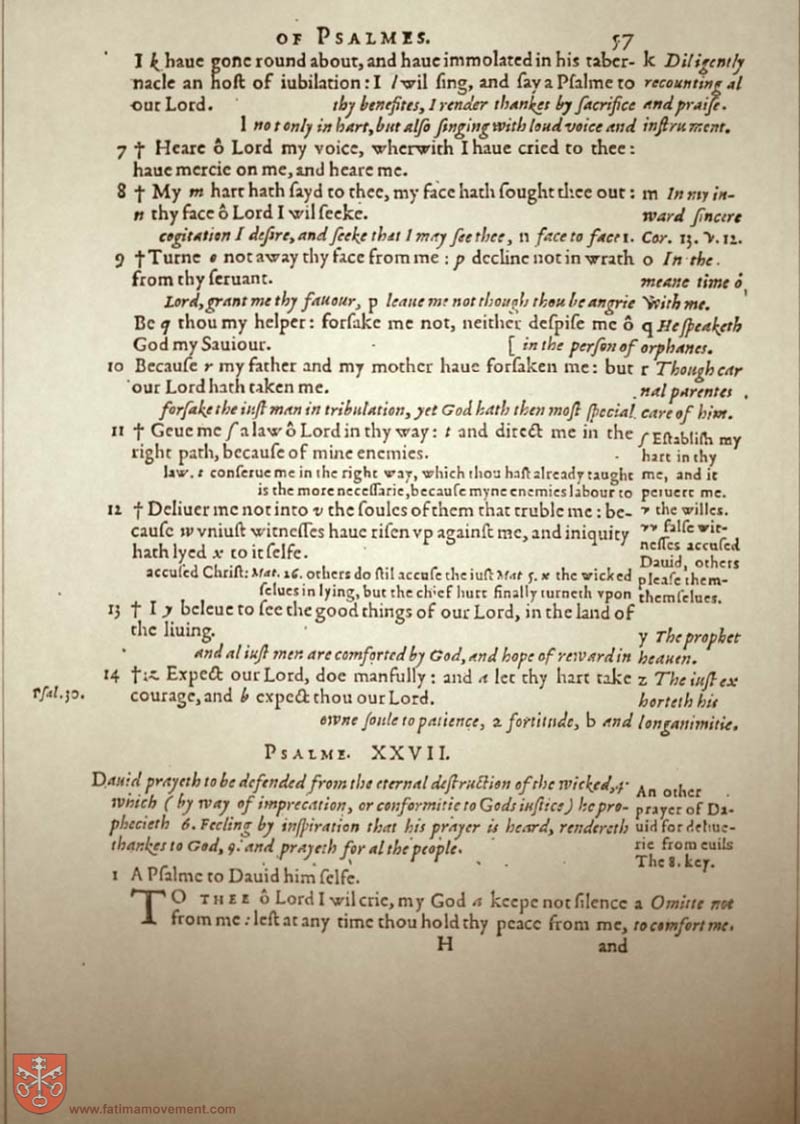 OF PSALMES. 57
I k haue gone round about, and haue immolated in his taber- k Diligently
nacle an hoſt of iubilation: I l wil ſing, and ſay a Pſalme to recounting al
our Lord. thy benefites, I render thankes by ſacrifice and praiſe.
l not only in hart, but alſo ſinging with loud voice and inſtrument.
7 † Heare ô Lord my voice, wherwith I haue cried to thee:
haue mercie on me, and heare me.
8 † My m hart hath ſayd to thee, my face hath ſought thee out: m In my in-
n thy face ô Lord I wil ſeeke. ward ſincere
cogitation I deſire, and ſeeke that I may ſee thee, n face to face 1. Cor. 13. v. 12.
9 † Turne o not away thy face from me: p decline not in wrath o In the
from thy ſeruant. meane time ô
Lord, grant me thy fauour, p leaue me not though thou be angrie with me.
Be q thou my helper: forſake me not, neither deſpiſe me ô q He ſpeaketh
God my Sauiour. [ in the perſon of orphanes.
10 Becauſe r my father and my mother haue forſaken me: but r Though car
our Lord hath taken me. nal parentes
forſake the iuſt man in tribulation, yet God hath then moſt ſpecial care of him.
11 † Geue me ſ a law ô Lord in thy way: t and direct me in the ſ Eſtabliſh my
right path, becauſe of mine enemies. hart in thy
law. t conſerue me in the right way, which thou haſt already taught me, and it
is the more neceſſarie, becauſe myne enemies labour to peruert me.
12 † Deliuer me not into v the ſoules of them that truble me: be- v the willes.
cauſe w vniuſt witneſſes haue riſen vp againſt me, and iniquity w falſe wit-
hath lyed x to it ſelfe. neſſes accuſed
Dauid, others
accuſed Chriſt: Mat. 26. others do ſtil accuſe the iuſt Mat 5. x the wicked pleaſe them-
ſelues in lying, but the chief hurt finally turneth vpon themſelues.
13 † I y beleue to ſee the good things of our Lord, in the land of
the liuing. y The prophet
and al iuſt men are comforted by God, and hope of reward in heauen.
14 † z Expect our Lord, doe manfully: and a let thy hart take z The iuſt ex
Pſal. 30. courage, and b expect thou our Lord. horteth his
owne ſoule to patience, a fortitude, b and longanimitie.
PSALME. XXVII.
Dauid prayeth to be defended from the eternal deſtruction of the wicked, 4.
which (by way of imprecation, or conformitie to Gods iuſtice) he pro-
phecieth 6. Feeling by inſpiration that his prayer is heard, rendereth
thankes to God, 9. and prayeth for al the people.
An other
prayer of Da-
uid for deliue-
rie from euils
The 8. key.
1 A Pſalme to Dauid him ſelfe.
TO THEE ô Lord I wil crie, my God a keepe not ſilence a Omitte not
from me: leſt at any time thou hold thy peace from me, to comfort me.
H and
www.fatimamovement.com